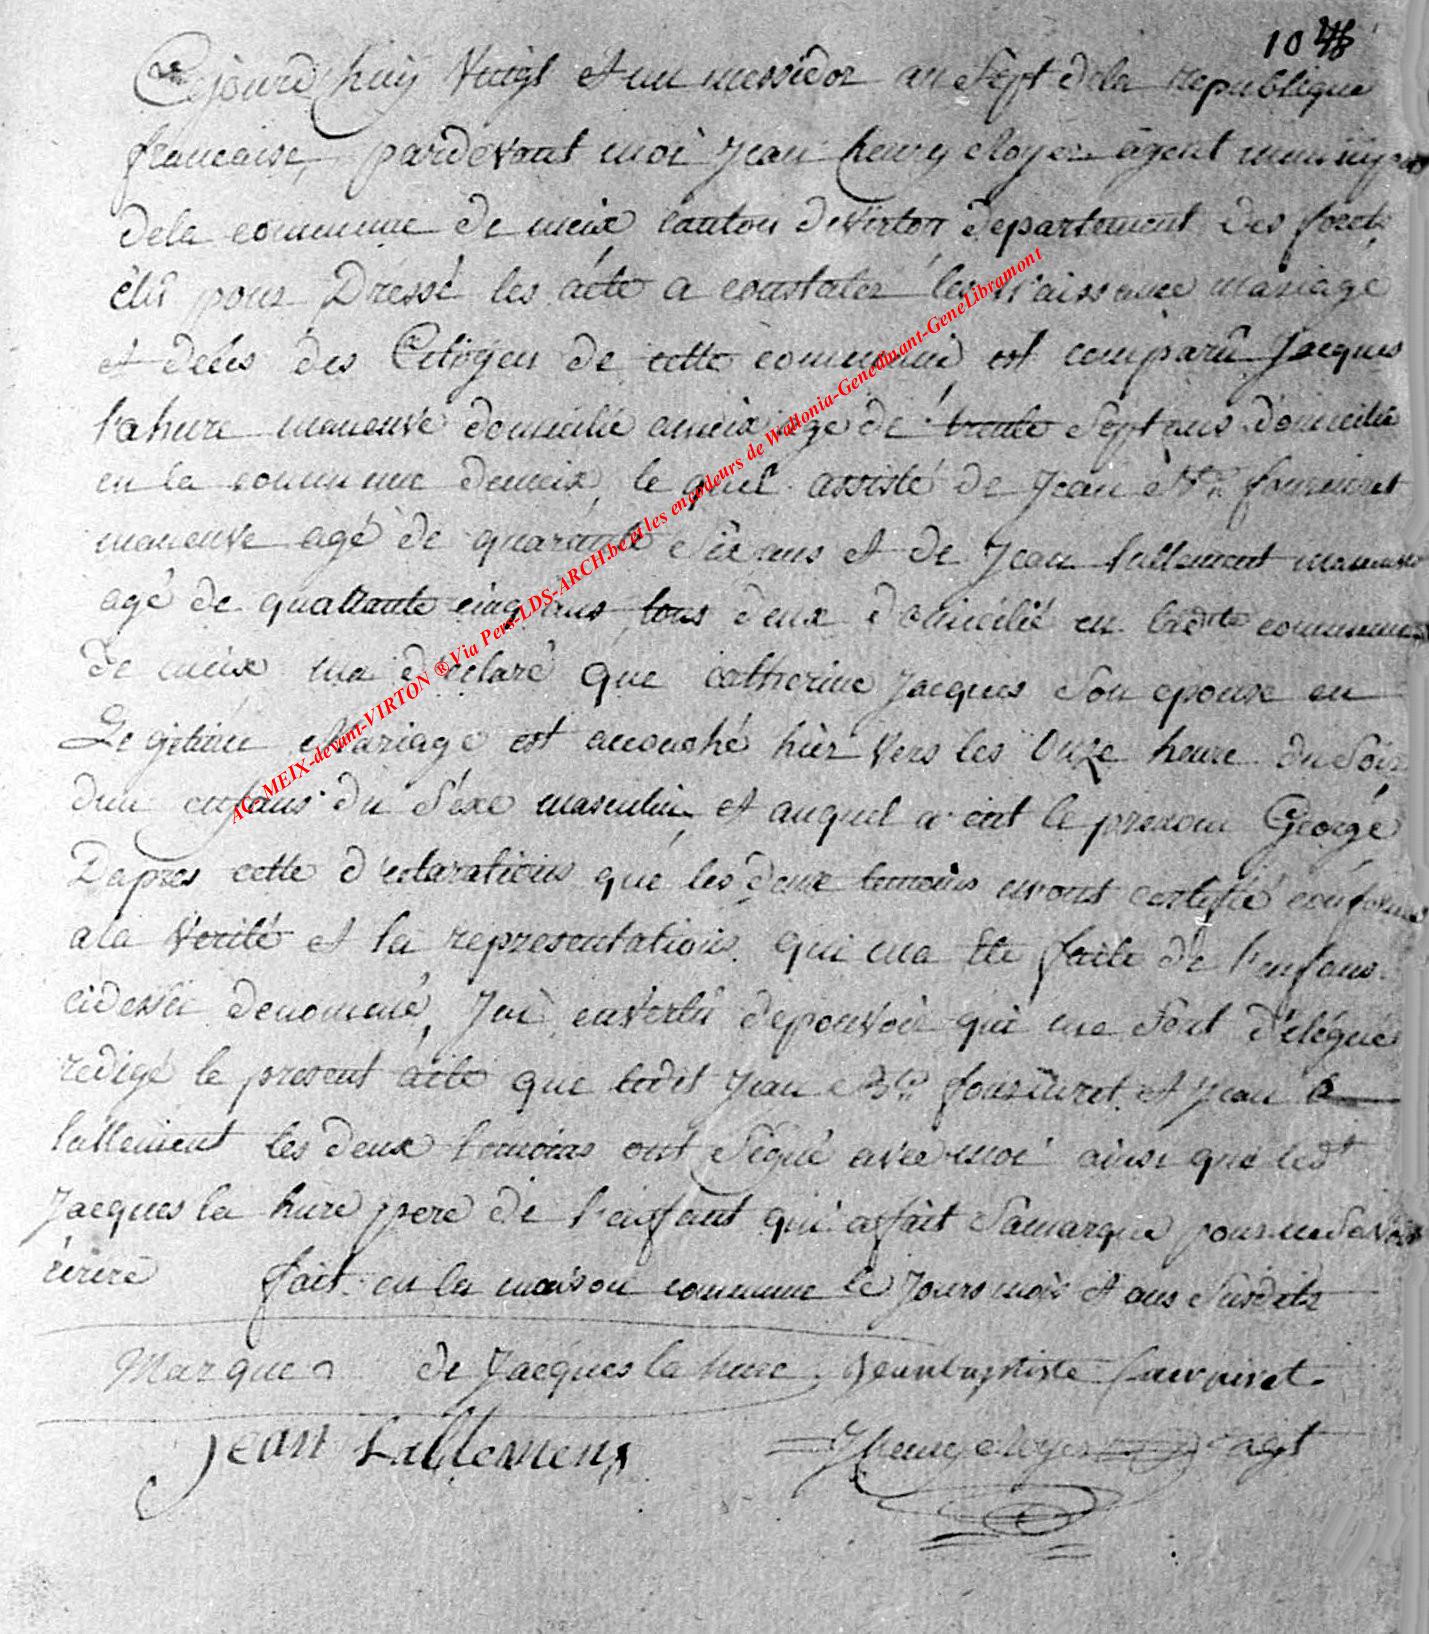 Cejourd'huy Vingt et un messidor an Sept dela republique
francaise, pardevant moi Jean henry Royer agent
dela commune de meix canton de Virton departement des forets
élû pour Dressé les acte a constater les N'aissance mariage
et decès des Citoyen de cette commune est comparû Jacques
l'ahure maneuve domicilié a meix age de trente Sept ans domicilié
en la commune demeix, le quel assisté de Jean
maneuve agé de quarante Six ans et de Jean lallement maneuve
agé de quattante cinq ans tous deux domicilié en ladite commune
de meix ma declaré que catherine Jacques Son epouse en
Legitime Mariage est acouché hièr Vers les Onze heure du Soir
dun enfans du Séxe masculin et auquel a eut le prenom George
Dapres cette d'eclarations que les deux temoins mont certifié conforme
ala Verité et la representations qui ma Ete faite de l'enfans
cidessu denommé, Jai en vertu depouvoir qui me Sont délégué
redigé le present acte que ledit Jean Btte et Jean
lallement les deux temoins ont Signé avec moi ainsi que ledt
Jacques la hure pere de l'enfant qui affait Samarque pour ne Savoir
écrire fait en la maison commune le Jours mois et ans Susdits
Marque de Jacques la hure Jeanbaptiste
Jean Lallement JHenry Royer agt
AC MEIX-devant-VIRTON ® Via Pers-LDS-ARCH.be et les encodeurs de Wallonia-Genedinant-GeneLibramont